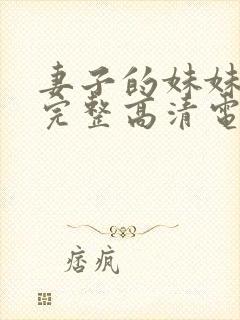 妻子的妹妹
完整高清電
痞疯